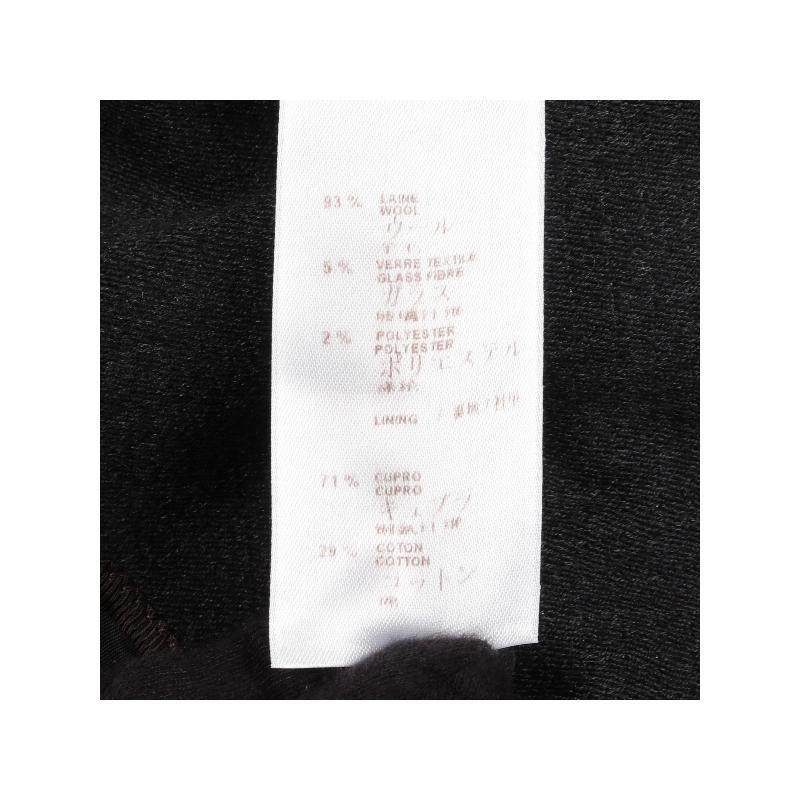 93 % LAINE
WOOL
ウール
5 % VERRE TEXTILE
GLASS FIBRE
ガラス
2 % POLYESTER
POLYESTER
ポリエステル
LINING /
71 % CUPRO
CUPRO
キュプラ
29 % COTON
COTTON
コットン